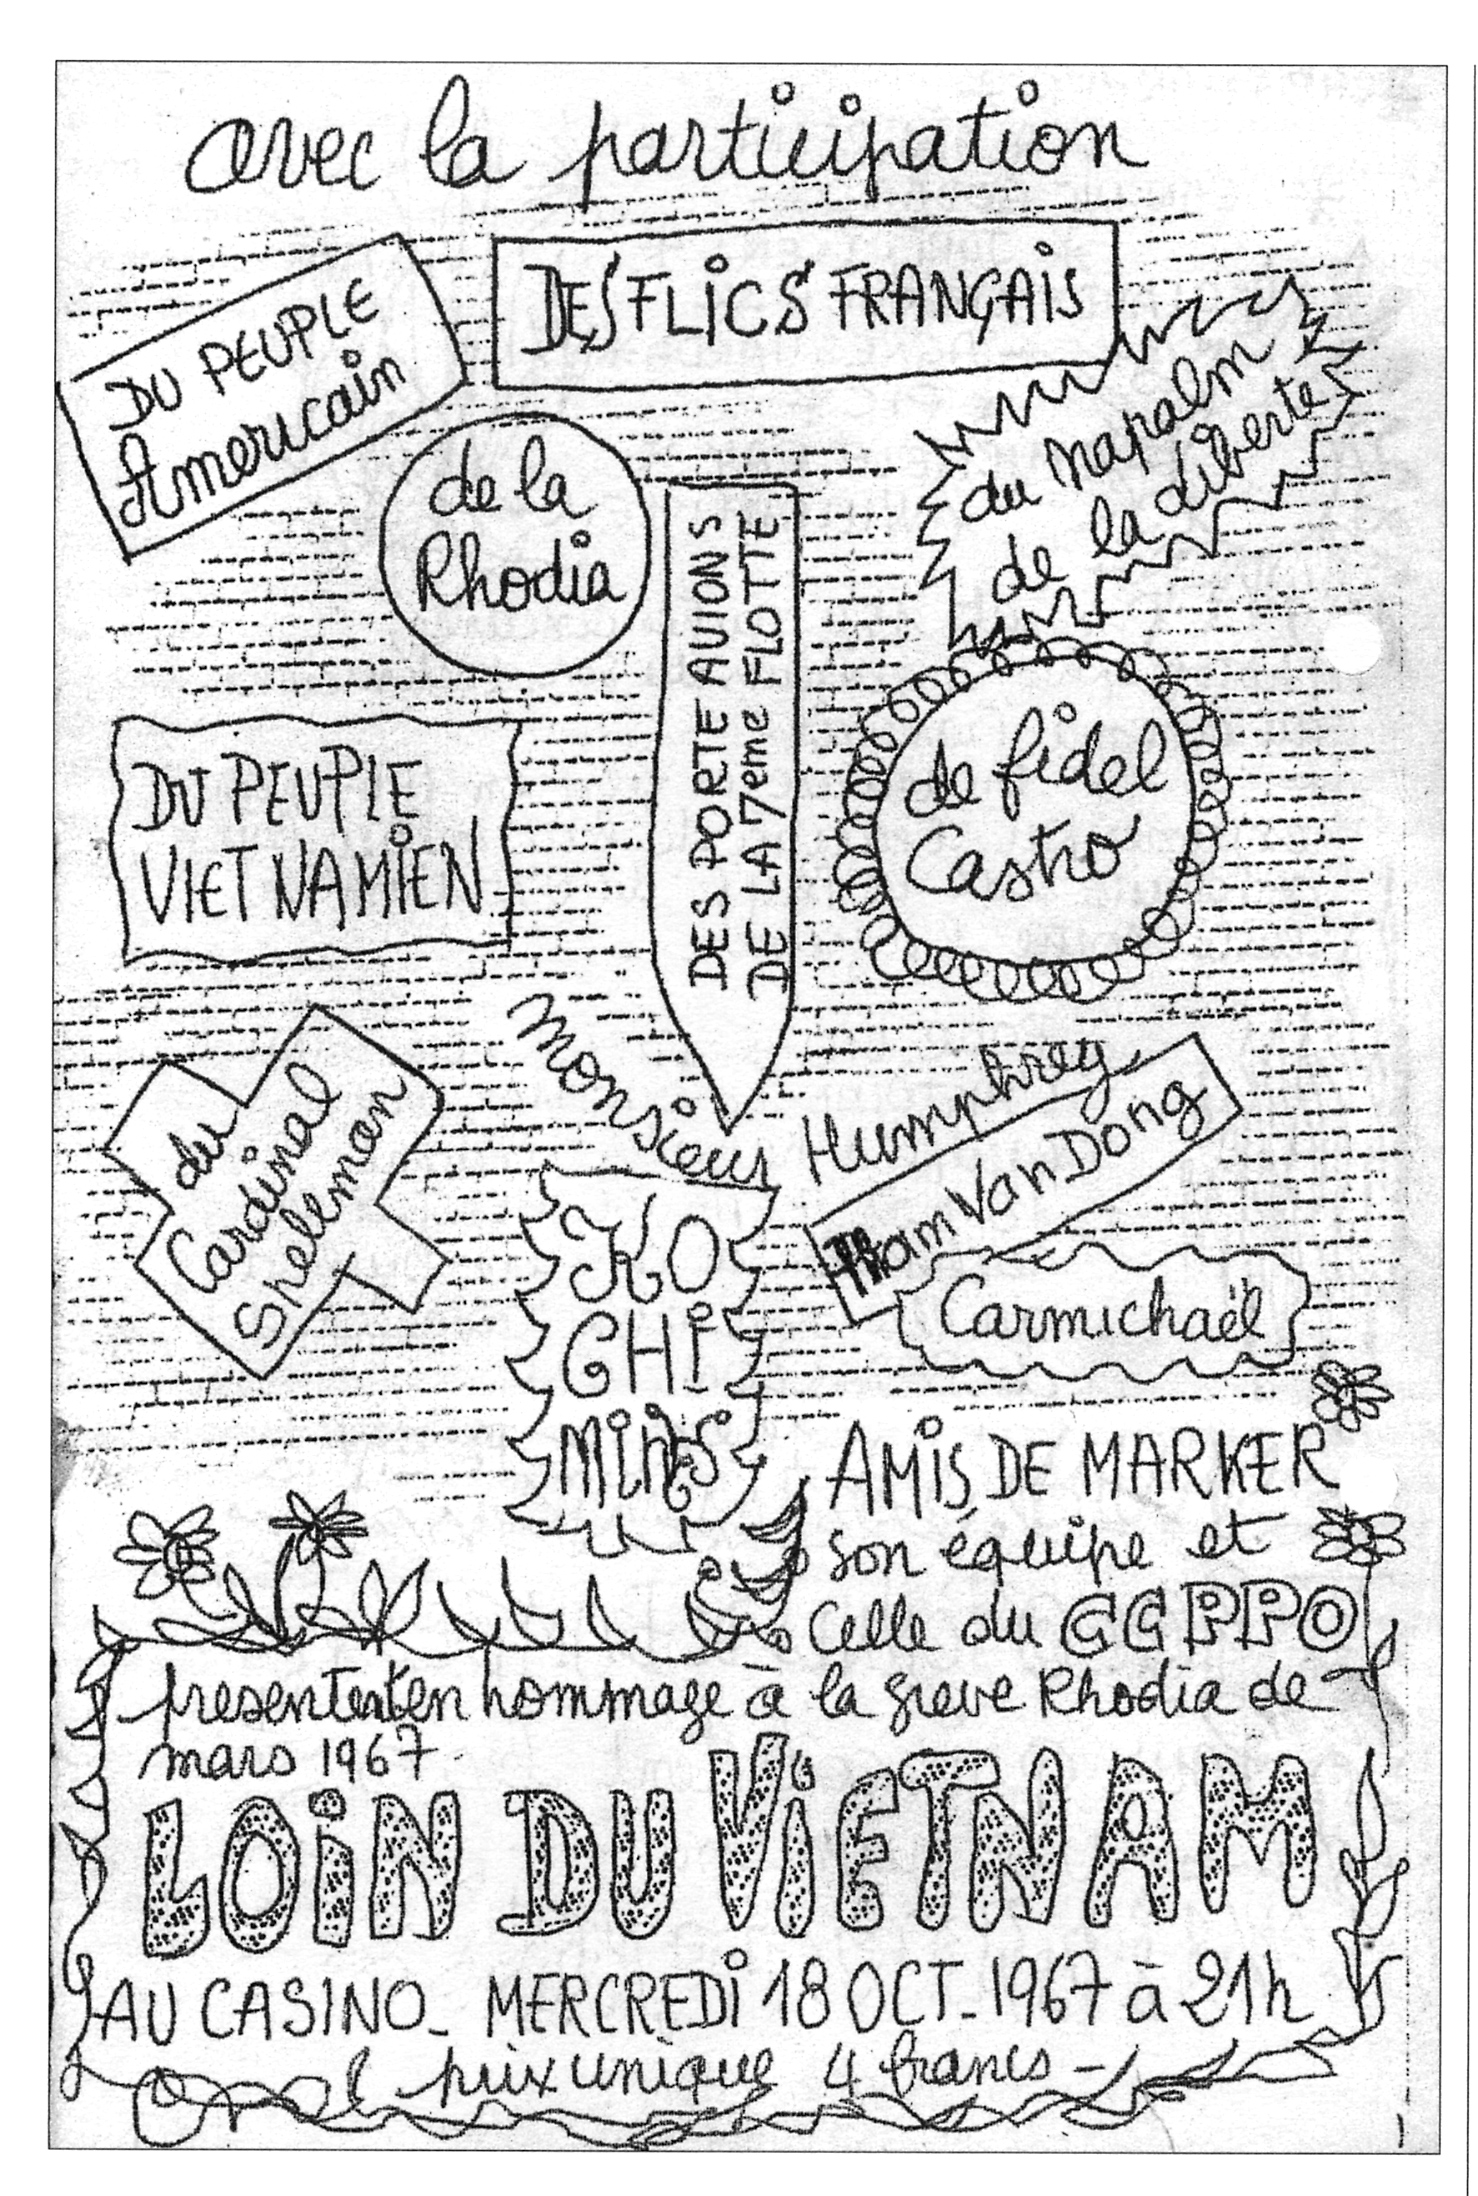 avec la participation
DU PEUPLE
Americain
DES FLICS FRANÇAIS
du napalm
de la liberté
de la
Rhodia
DES PORTE AVIONS
DE LA 7eme FLOTTE
DU PEUPLE
VIET NAMIEN
de fidel
Castro
du
Cardinal
Spellman
Monsieur
HO
CHI
MINH
Humphrey
Pham Van Dong
Carmichaël
AMIS DE MARKER
son équipe et
celle du CCPPO
presentent en hommage à la greve Rhodia de
mars 1967
LOIN DU VIETNAM
AU CASINO - MERCREDI 18 OCT - 1967 à 21h
prix unique 4 francs -